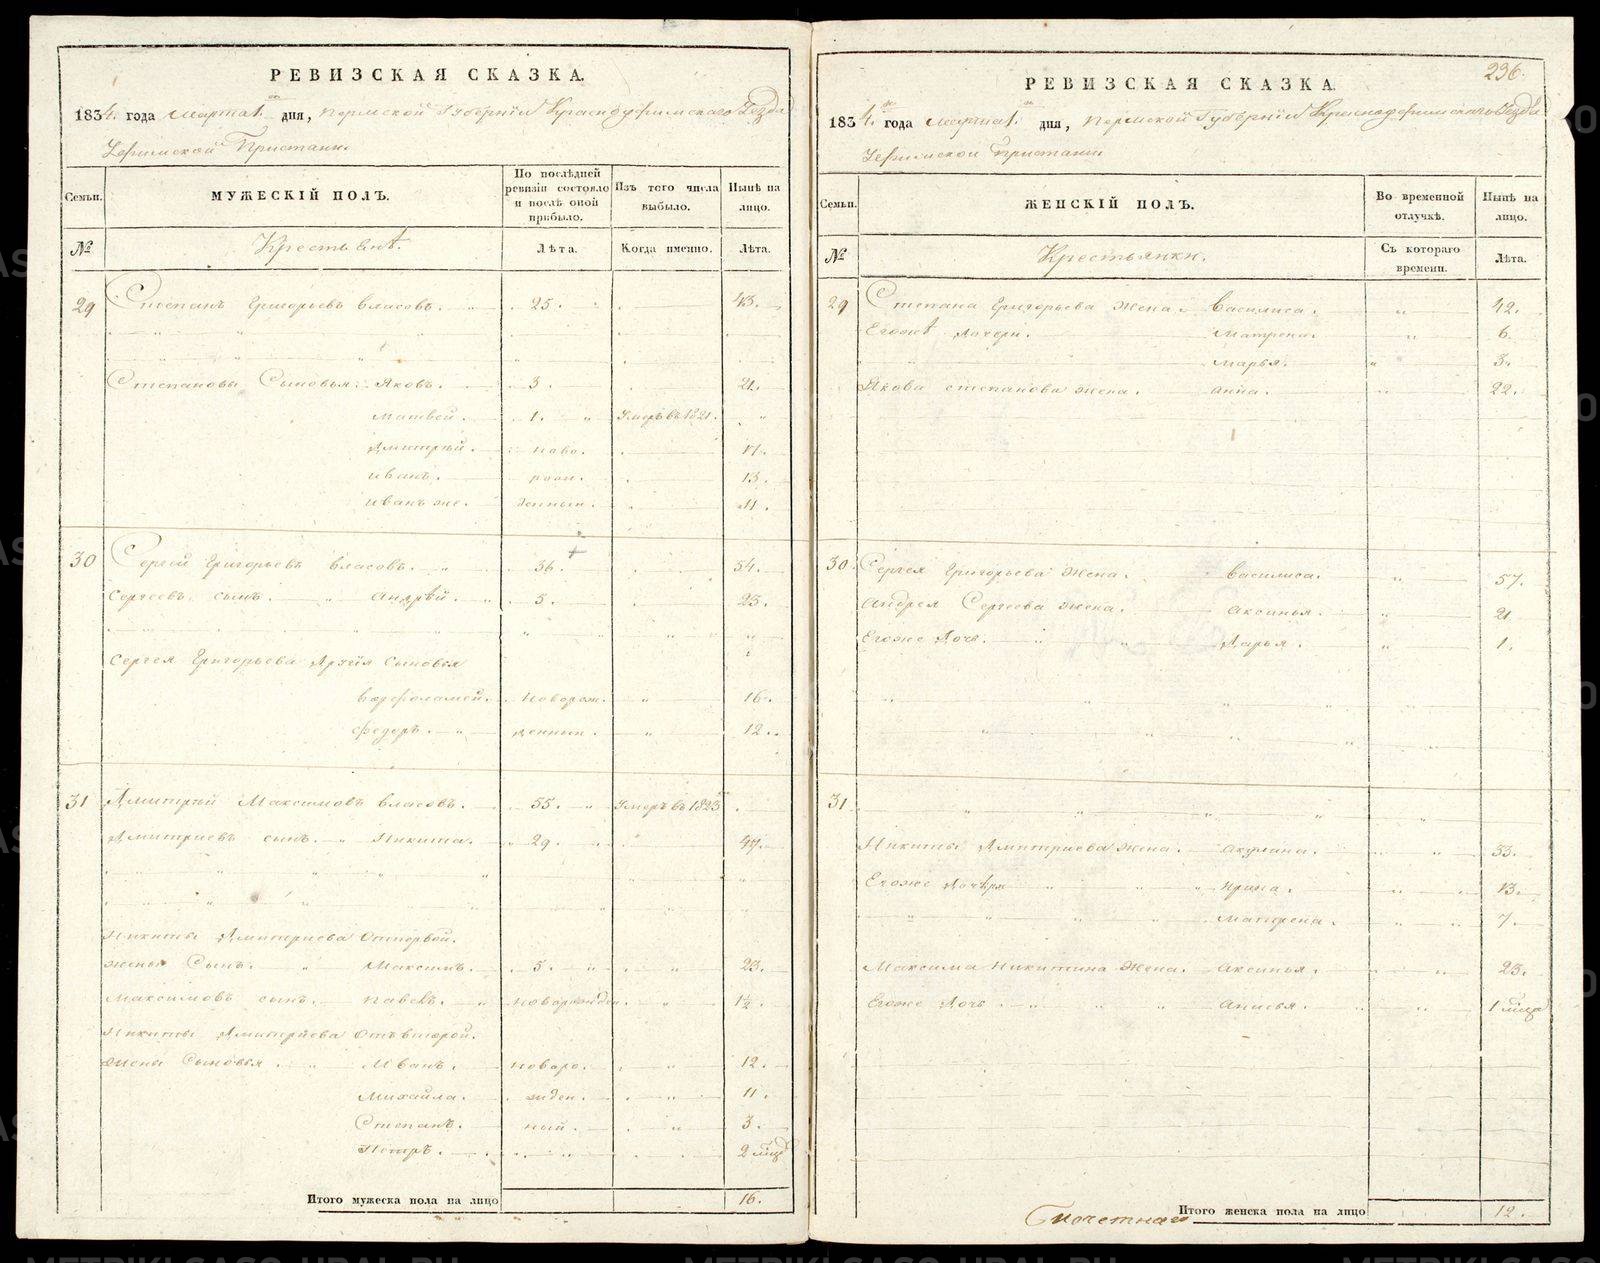 РЕВИЗСКАЯ СКАЗКА.
1834. года марта 1 дня, Пермской Губернiи Красноуфимскаго Уезда
Пристани
Семьи. МУЖЕСКIЙ ПОЛЪ. По послѣдней ревизiи состояло и послѣ оной прибыло. Изъ того числа выбыло. Нынѣ на лицо.
№ Крестьянѣ. Лѣта. Когда именно. Лѣта.
29 Степанъ Григорьевъ Власовъ. 25. 43.
Степановы Сыновья. Яковъ. 3. 21.
Матвей. 1. Умеръ въ 1821.
Дмитрiй. ново. 17.
Иванъ. рож. 13.
Иванъ же. денныи. 11.
30 Сергiй Григорьевъ Власовъ. 36. 54.
Сергеевъ сынъ. Андрѣй. 5. 23.
Сергея Григорьева Другiя Сыновья
Варфоламей. новорож. 16.
Федоръ. денныи. 12.
31 Дмитрiй Максимовъ Власовъ. 55. Умеръ въ 1823
Дмитриевъ сынъ. Никита. 29. 47.
Никиты Дмитриева Отпервой.
жены Сынъ. Максимъ. 5. 23.
Максимовъ сынъ. Павелъ. новорожден. 1½.
Никиты Дмитрiева Отъ второй.
жены Сыновья. Иванъ. новоро. 12.
Михайла. жден. 11.
Степанъ. ный. 3.
Петръ. 2 мѣся
Итого мужеска пола на лицо 16.
236.
РЕВИЗСКАЯ СКАЗКА.
1834. года марта 1 дня, Пермской Губернiи Красноуфимскаго Уезда
Пристани
Семьи. ЖЕНСКIЙ ПОЛЪ. Во временной отлучкѣ. Нынѣ на лицо.
№ Крестьянки. Съ котораго времени. Лѣта.
29 Степана Григорьева Жена. Василиса. 42.
Егожѣ Дочери. Матрена. 6
Марья. 3.
Якова степанова жена. Анна. 22.
30 Сергея Григорьева Жена. Василиса. 57.
Андрея Сергеева жена. Аксинья. 21
Егоже Дочь. Дарья. 1.
31
Никиты Дмитриева Жена. Акулина. 33.
Егоже Дочѣри Ирина. 13.
Матрена. 7.
Максима Никитина Жена. Аксинья. 23.
Егоже Дочь Анисья. 1 мѣся
Итого женска пола на лицо 12.